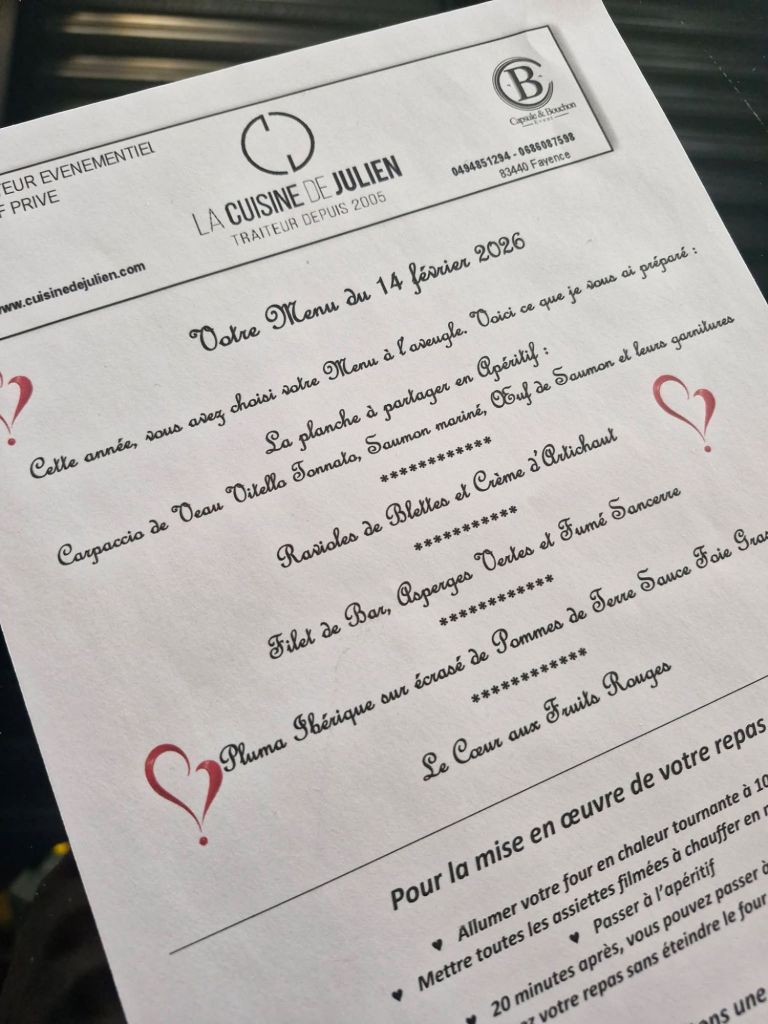 CB
Capsule & Bouchon
Event
TEUR EVENEMENTIEL
F PRIVE
LA CUISINE DE JULIEN
TRAITEUR DEPUIS 2005
0494851294 - 0686087598
83440 Fayence
www.cuisinedejulien.com
Votre Menu du 14 février 2026
Cette année, vous avez choisi votre Menu à l'aveugle. Voici ce que je vous ai préparé :
La planche à partager en Apéritif :
Carpaccio de Veau Vitello Tonnato, Saumon mariné, Œuf de Saumon et leurs garnitures
************
Ravioles de Blettes et Crème d'Artichaut
***********
Filet de Bar, Asperges Vertes et Fumé Sancerre
************
Pluma Ibérique sur écrasé de Pommes de Terre Sauce Foie Gras
************
Le Cœur aux Fruits Rouges
Pour la mise en œuvre de votre repas
♥ Allumer votre four en chaleur tournante à 10
♥ Mettre toutes les assiettes filmées à chauffer en
♥ Passer à l'apéritif
♥ 20 minutes après, vous pouvez passer à
ez votre repas sans éteindre le four
ons une